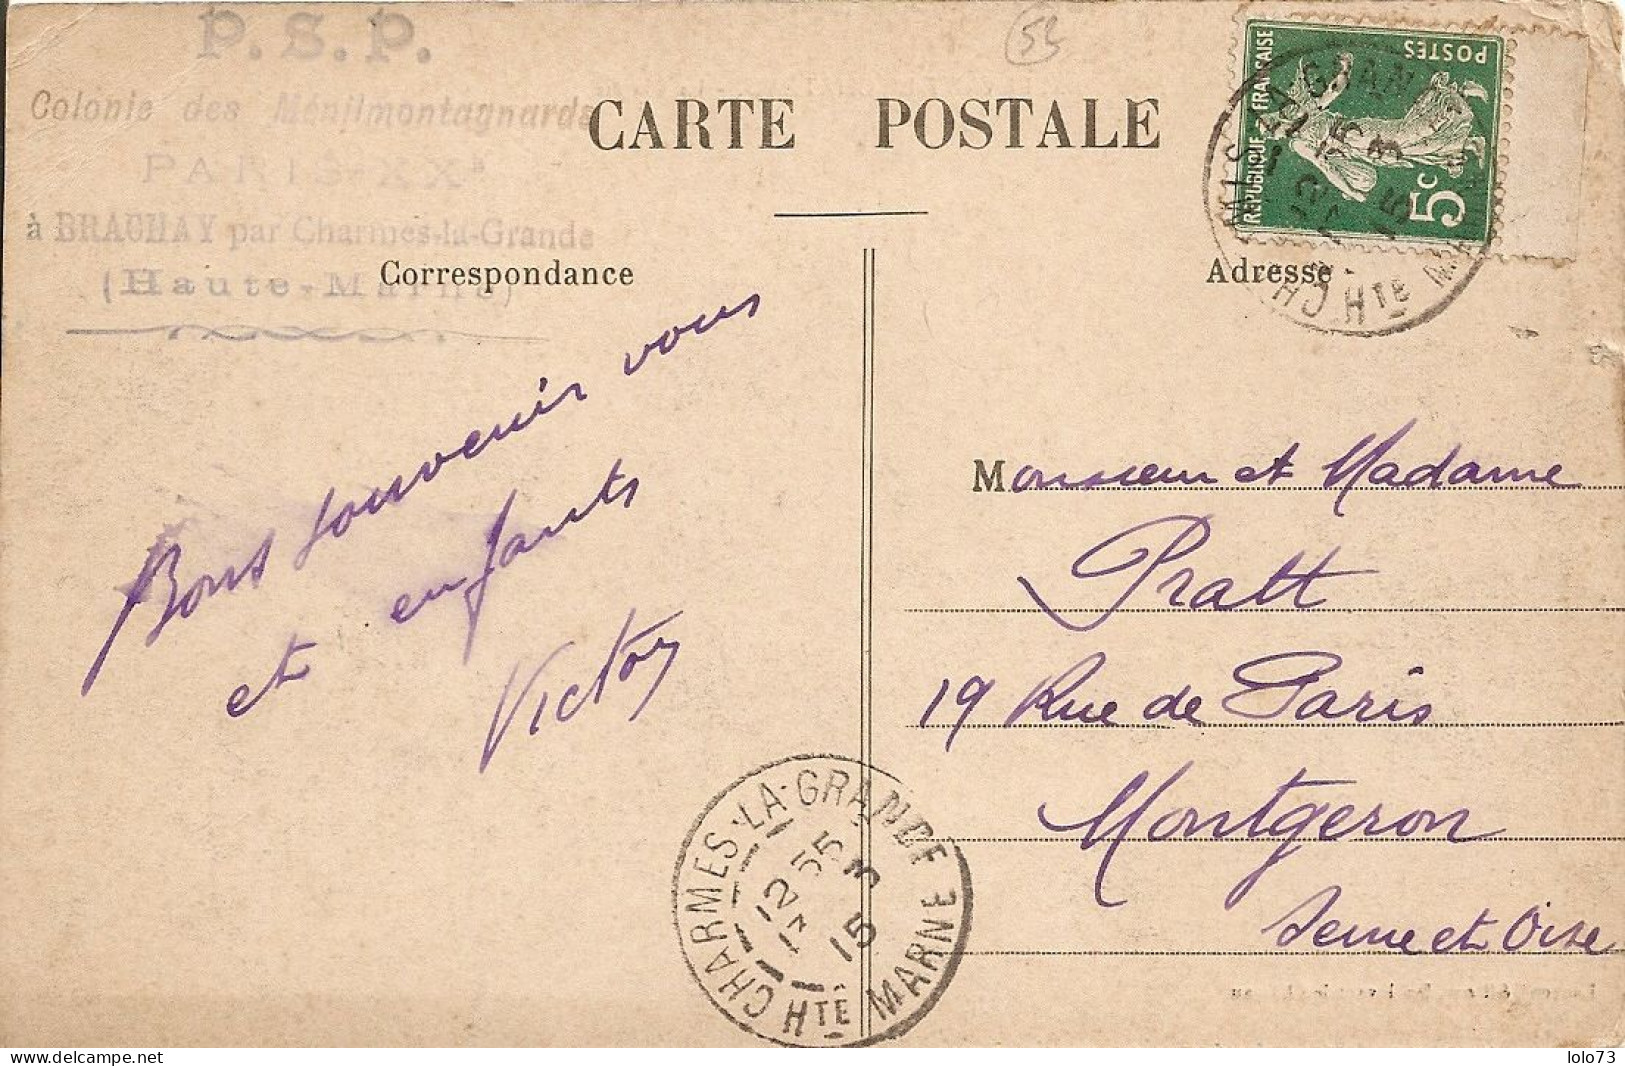 P.S.P.
Colonie des Ménilmontagnards
PARIS-XXe
à BRACHAY par Charmes-la-Grande
(Haute-Marne)
53
CARTE POSTALE
RÉPUBLIQUE FRANÇAISE
POSTES
5c
Correspondance
Adresse
Bons souvenir vous
et enfants
Victor
Monsieur et Madame
Pratt
19 Rue de Paris
Montgeron
Seine et Oise
CHARMES-LA-GRANDE
12 55
13 3
15
HTE MARNE
lolo73
www.delcampe.net